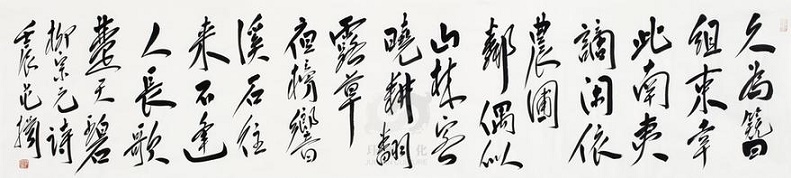 久為簪
組束幸
此南夷
謫閑依
農圃
鄰偶似
山林客
曉耕翻
露草
夜榜響
溪石往
來不逢
人長歌
楚天碧
柳宗元詩
壬辰范